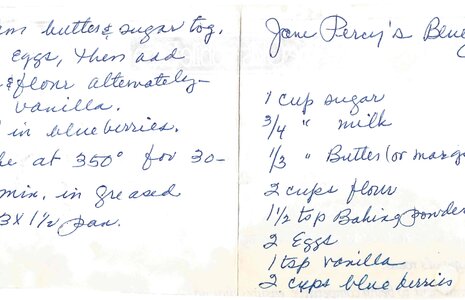 butter & sugar tog.
Eggs, then add
& flour alternately -
vanilla.
in blueberries.
at 350° for 30-
min. in greased
3 x 1 1/2 pan.
Jane Percy's Blue
1 cup sugar
3/4 " milk
1/3 " Butter (or marg
2 cups flour
1 1/2 tsp Baking powder
2 Eggs
1 tsp vanilla
2 cups blueberries